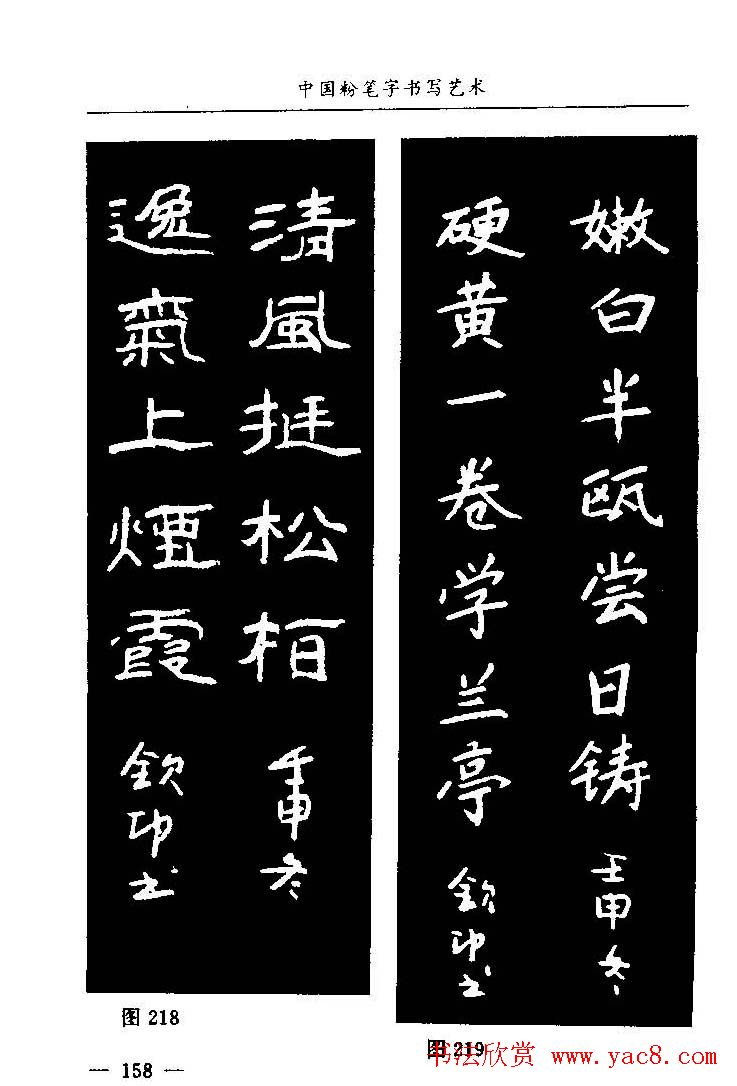 中国粉笔字书写艺术
清風挺松柏
壬申冬
逸氣上煙霞
钦印书
嫩白半瓯尝日铸
壬申冬
硬黄一卷学兰亭
钦印书
图218
图219
— 158 —
书法欣赏 www.yac8.com